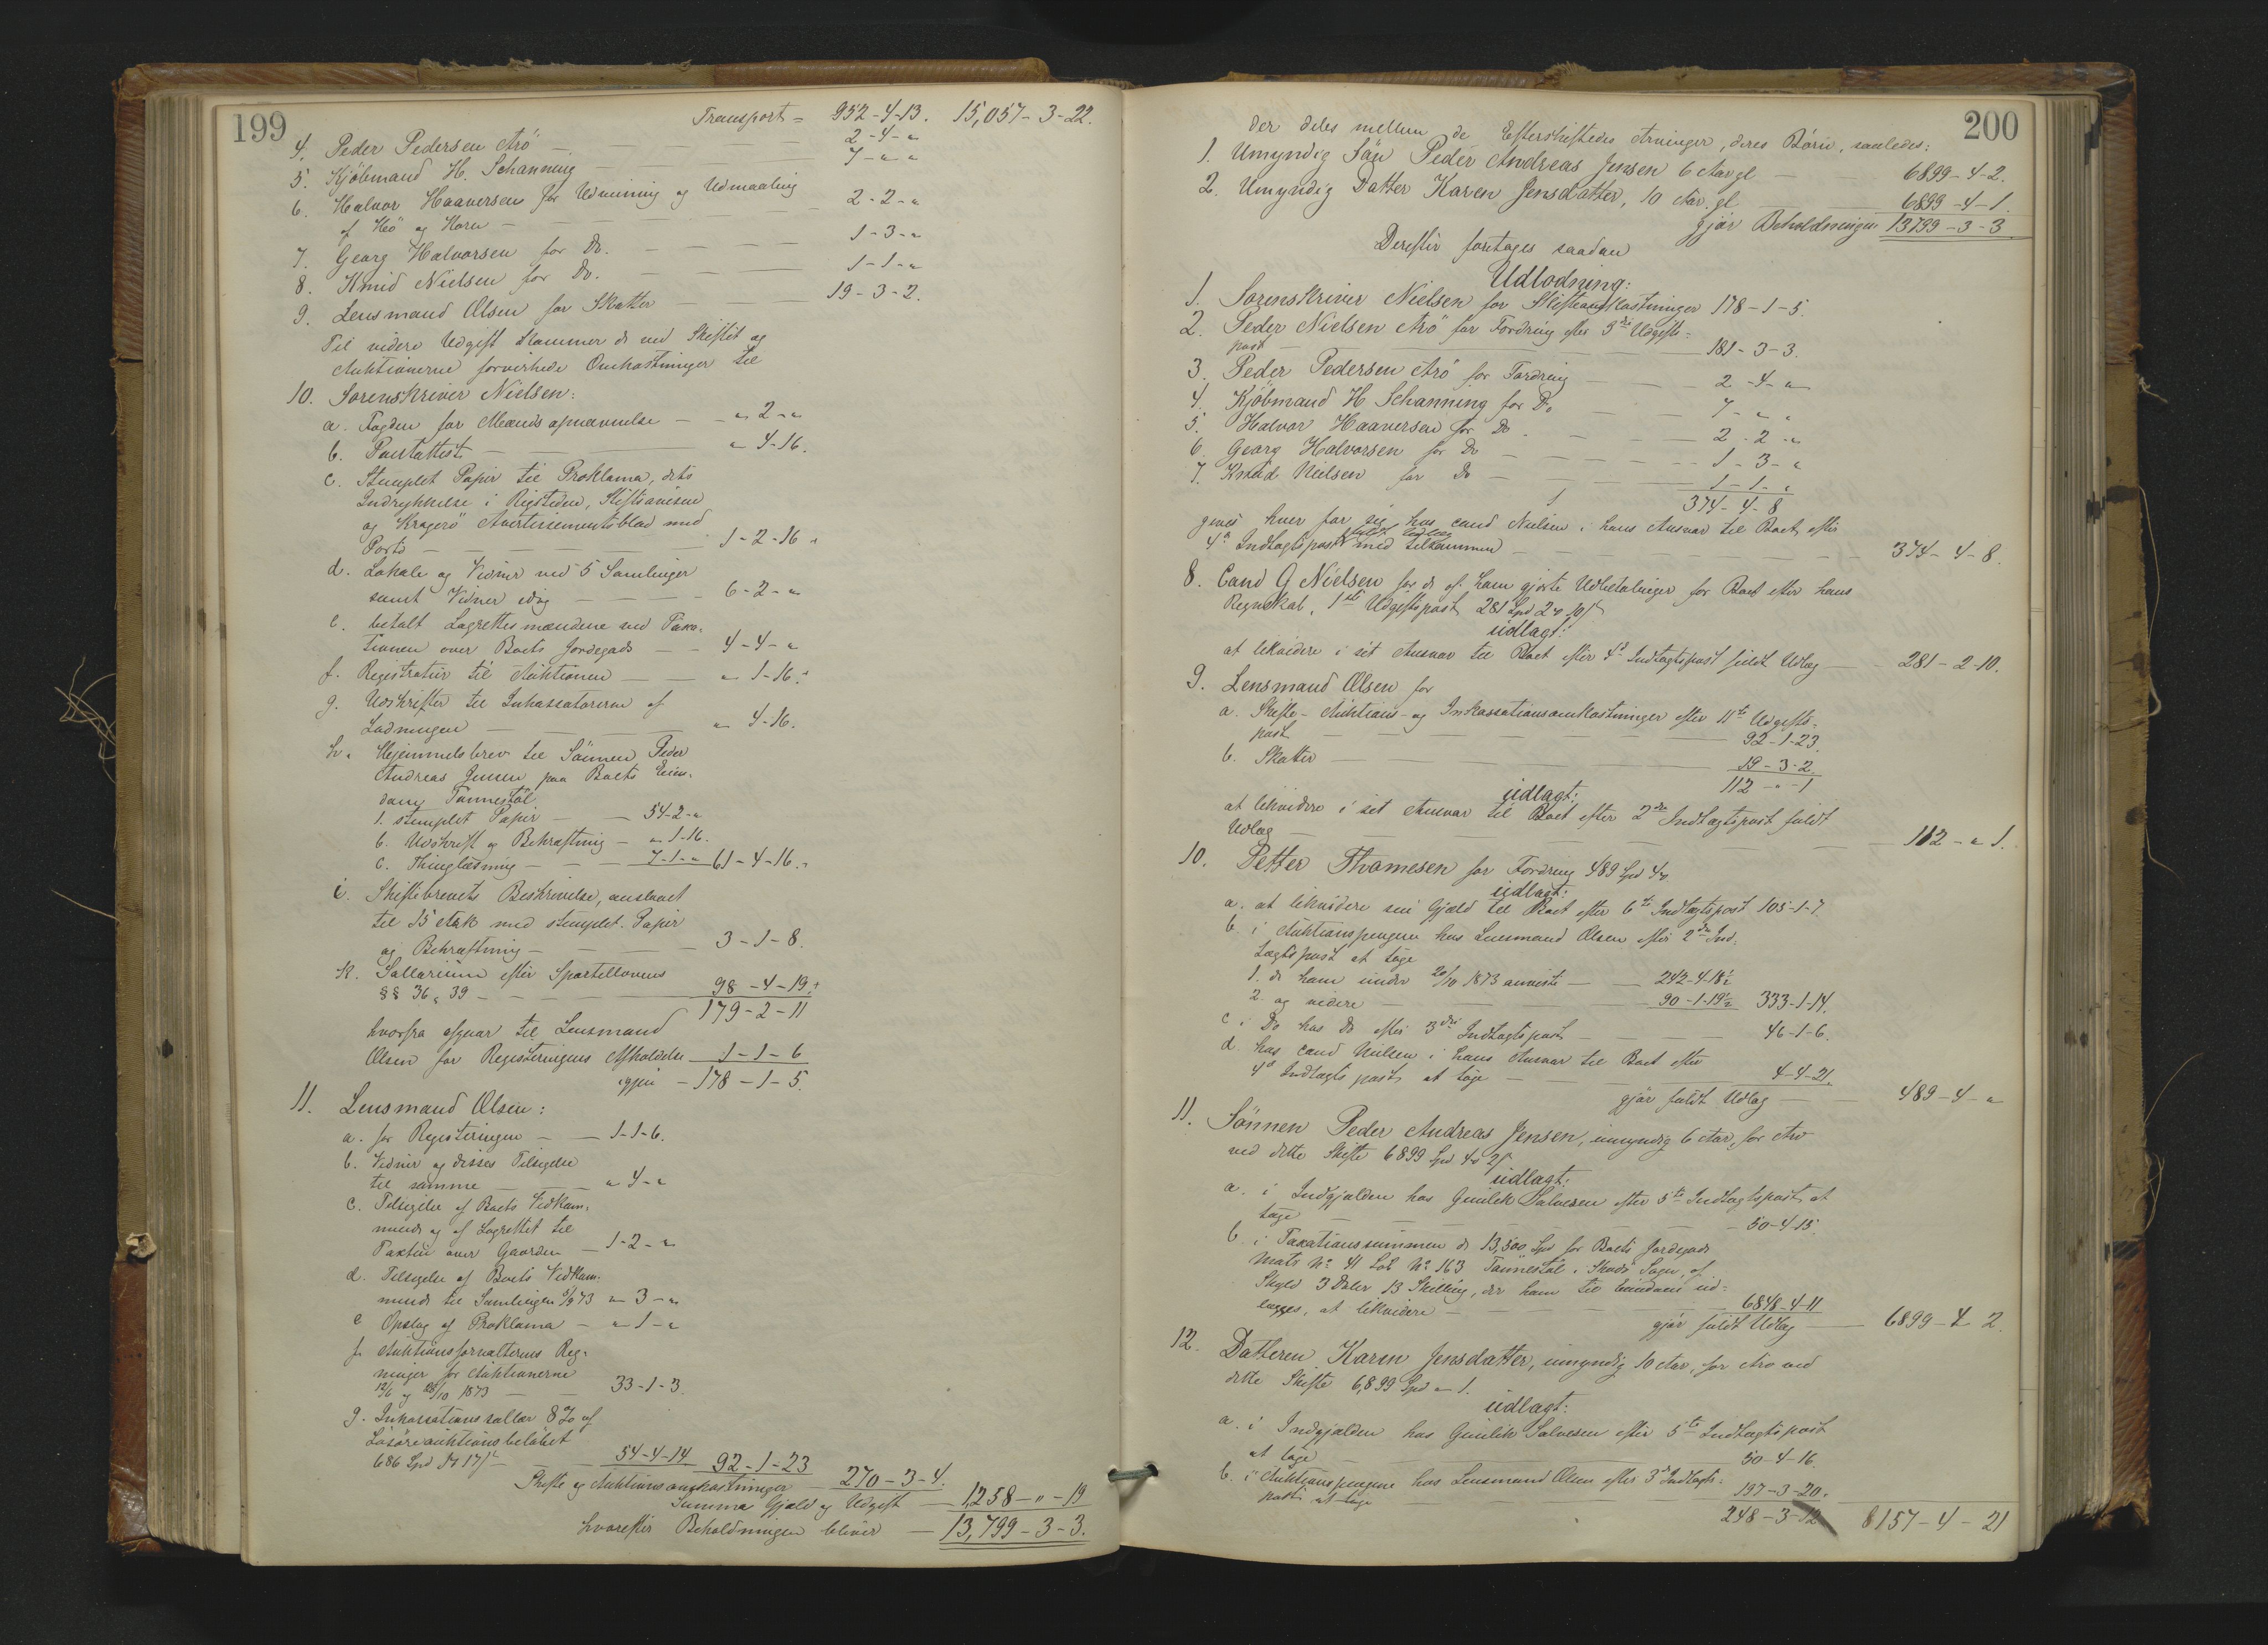 199
Transport = 952-4-13. 15,057-3-22.
4. Peder Pedersen Arö — 2-4-"
5. Kjöbmand H. Schanning — 7-"-"
6. Halvor Haaversen for Udvinning og Udmaaling
af Hö og Korn — 2-2-"
7. Georg Halvorsen for Do. — 1-3-"
8. Knud Nielsen for Do. — 1-1-"
9. Lensmand Olsen for Skatter — 19-3-2.
Til videre Udgift kommer de ved Skiftet og
Auktionerne forvirkede Omkostninger til
10. Sorenskriver Nielsen:
a. Fogden for Mænds opnævnelse — "-2-"
b. Pantattest — "-4-16.
c. Stemplet Papir til Proklama, dets
Indrykkelse i Rigstiden, Stiftsavisen
og Kragerö Avertissementsblad med
Porto — 1-2-16
d. Lokale og Vidner ved 5 Samlinger
samt Vidner idag — 6-2-"
e. betalt Lagrettesmændene ved Taxa-
tionen over Boets Jordegods — 4-4-"
f. Registratur til Auktionen — "-1-16.
g. Udskrifter til Inkassatorerne af
Ladningen — "-4-16.
h. Hjemmelsbrev til Sönnen Peder
Andreas Jensen paa Boets Eien-
dom Tönnestöl
1. stemplet Papir — 54-2-"
b. Udskrift og Bekræftning — "-1-16.
c. Thinglæsning — 7-1-" 61-4-16.
i. Skiftebrevets Beskrivelse, anslaaet
til 15 Ark med stemplet Papir
og Bekræftning — 3-1-8.
k. Sallarium efter Sportellovens
§§ 36, 39 — 98-4-19.
179-2-11
hvorfra afgaar til Lensmand
Olsen for Registeringens Afholdelse — 1-1-6
igjen — 178-1-5.
11. Lensmand Olsen:
a. for Registeringen — 1-1-6.
b. Vidner og disses Tilsigelse
til samme — "-4-"
c. Tilsigelse af Boets Vedkom-
mende og af Lagrettet til
Taxten over Gaarden — 1-2-"
d. Tilsigelse af Boets Vedkom-
mende til Samlingen 5/9 73 "-3-"
e Opslag af Proklama — "-1-"
f. Auktionsforvalterens Reg-
ninger for Auktionerne
12/6 og 28/10 1873 — 33-1-3.
g. Inkassationssallær 8% af
Lösöreauktionsbelöbet
686 Spd — 54-4-14 92-1-23
Skifte og Auktionsomkostninger — 270-3-4.
Summa Gjæld og Udgift — 1,258-"-19
hvorefter Beholdningen bliver — 13,799-3-3.
200
der deles mellem de Efterskiftedes Arvinger, deres Börn, saaledes:
1. Umyndig Sön Peder Andreas Jensen 6 Aar gl — 6899-4-2.
2. Umyndig Datter Karen Jensdatter, 10 Aar gl — 6899-4-1.
gjör Beholdningen 13799-3-3
Derefter foretages saadan
Udlodning:
1. Sorenskriver Nielsen for Skifteomkostninger 178-1-5.
2. Peder Nielsen Arö for Fordring efter 3die Udgifts-
post — 181-3-3.
3. Peder Pedersen Arö for Fordring — 2-4-"
4. Kjöbmand H Schanning for Do — 7-"-"
5. Halvor Haaversen for Do — 2-2-"
6. Georg Halvorsen for Do — 1-3-"
7. Knud Nielsen for Do — 1-1-"
374-4-8
gives hver for sig hos cand Nielsen i hans Ansvar til Boet efter
4de Indtægtspost fuldt Udlæg med tilkommende — 374-4-8.
8. Cand G Nielsen for de af ham gjorte Udbetalinger for Boet efter hans
Regnskab, 1ste Udgiftspost 281 Spd 2 10
udlagt:
at likvidere i sit Ansvar til Boet efter 4de Indtægtspost fuldt Udlæg — 281-2-10.
9. Lensmand Olsen for
a. Skifte- Auktions- og Inkassationsomkostninger efter 11te Udgifts-
post — 92-1-23.
b. Skatter — 19-3-2.
112-"-1
udlagt:
at likvidere i sit Ansvar til Boet efter 2den Indtægtspost fuldt
Udlæg — 112-"-1.
10. Petter Thomesen for Fordring 489 Spd 4
udlagt:
a. at likvidere sin Gjæld til Boet efter 6te Indtægtspost 105-1-7.
b. i Auktionspengene hos Lensmand Olsen efter 2den Ind-
tægtspost at tage
1. de ham under 20/10 1873 anviste — 242-4-18½
2. og videre — 90-1-19½ 333-1-14.
c i Do hos Do efter 3die Indtægtspost — 46-1-6.
d. hos cand Nielsen i hans Ansvar til Boet efter
4de Indtægtspost at tage — 4-4-21.
gjör fuldt Udlæg — 489-4-"
11. Sönnen Peder Andreas Jensen, umyndig 6 Aar, for Arv
ved dette Skifte 6899 Spd 4 2
udlagt:
a. i Indgjælden hos Gunlek Salvesen efter 5te Indtægtspost at
tage — 50-4-15.
b. i Taxationssummen de 13,500 Spd for Boets Jordegods
Mats No 41 Löb No 163 Tönnestöl i Skads Sogn, af
Skyld 3 Daler 13 Skilling, der ham til Eiendom ud-
lægges, at likvidere — 6848-4-11
gjör fuldt Udlæg — 6899-4 2.
12. Datteren Karen Jensdatter, umyndig 10 Aar, for Arv ved
dette Skifte 6,899 Spd " 1.
udlagt:
a. i Indgjælden hos Gunlek Salvesen efter 5te Indtægtspost
at tage — 50-4-16.
b. i Auktionspengene hos Lensmand Olsen efter 3die Indtægts-
post at tage — 197-3-20.
248-3-12 8157-4-21